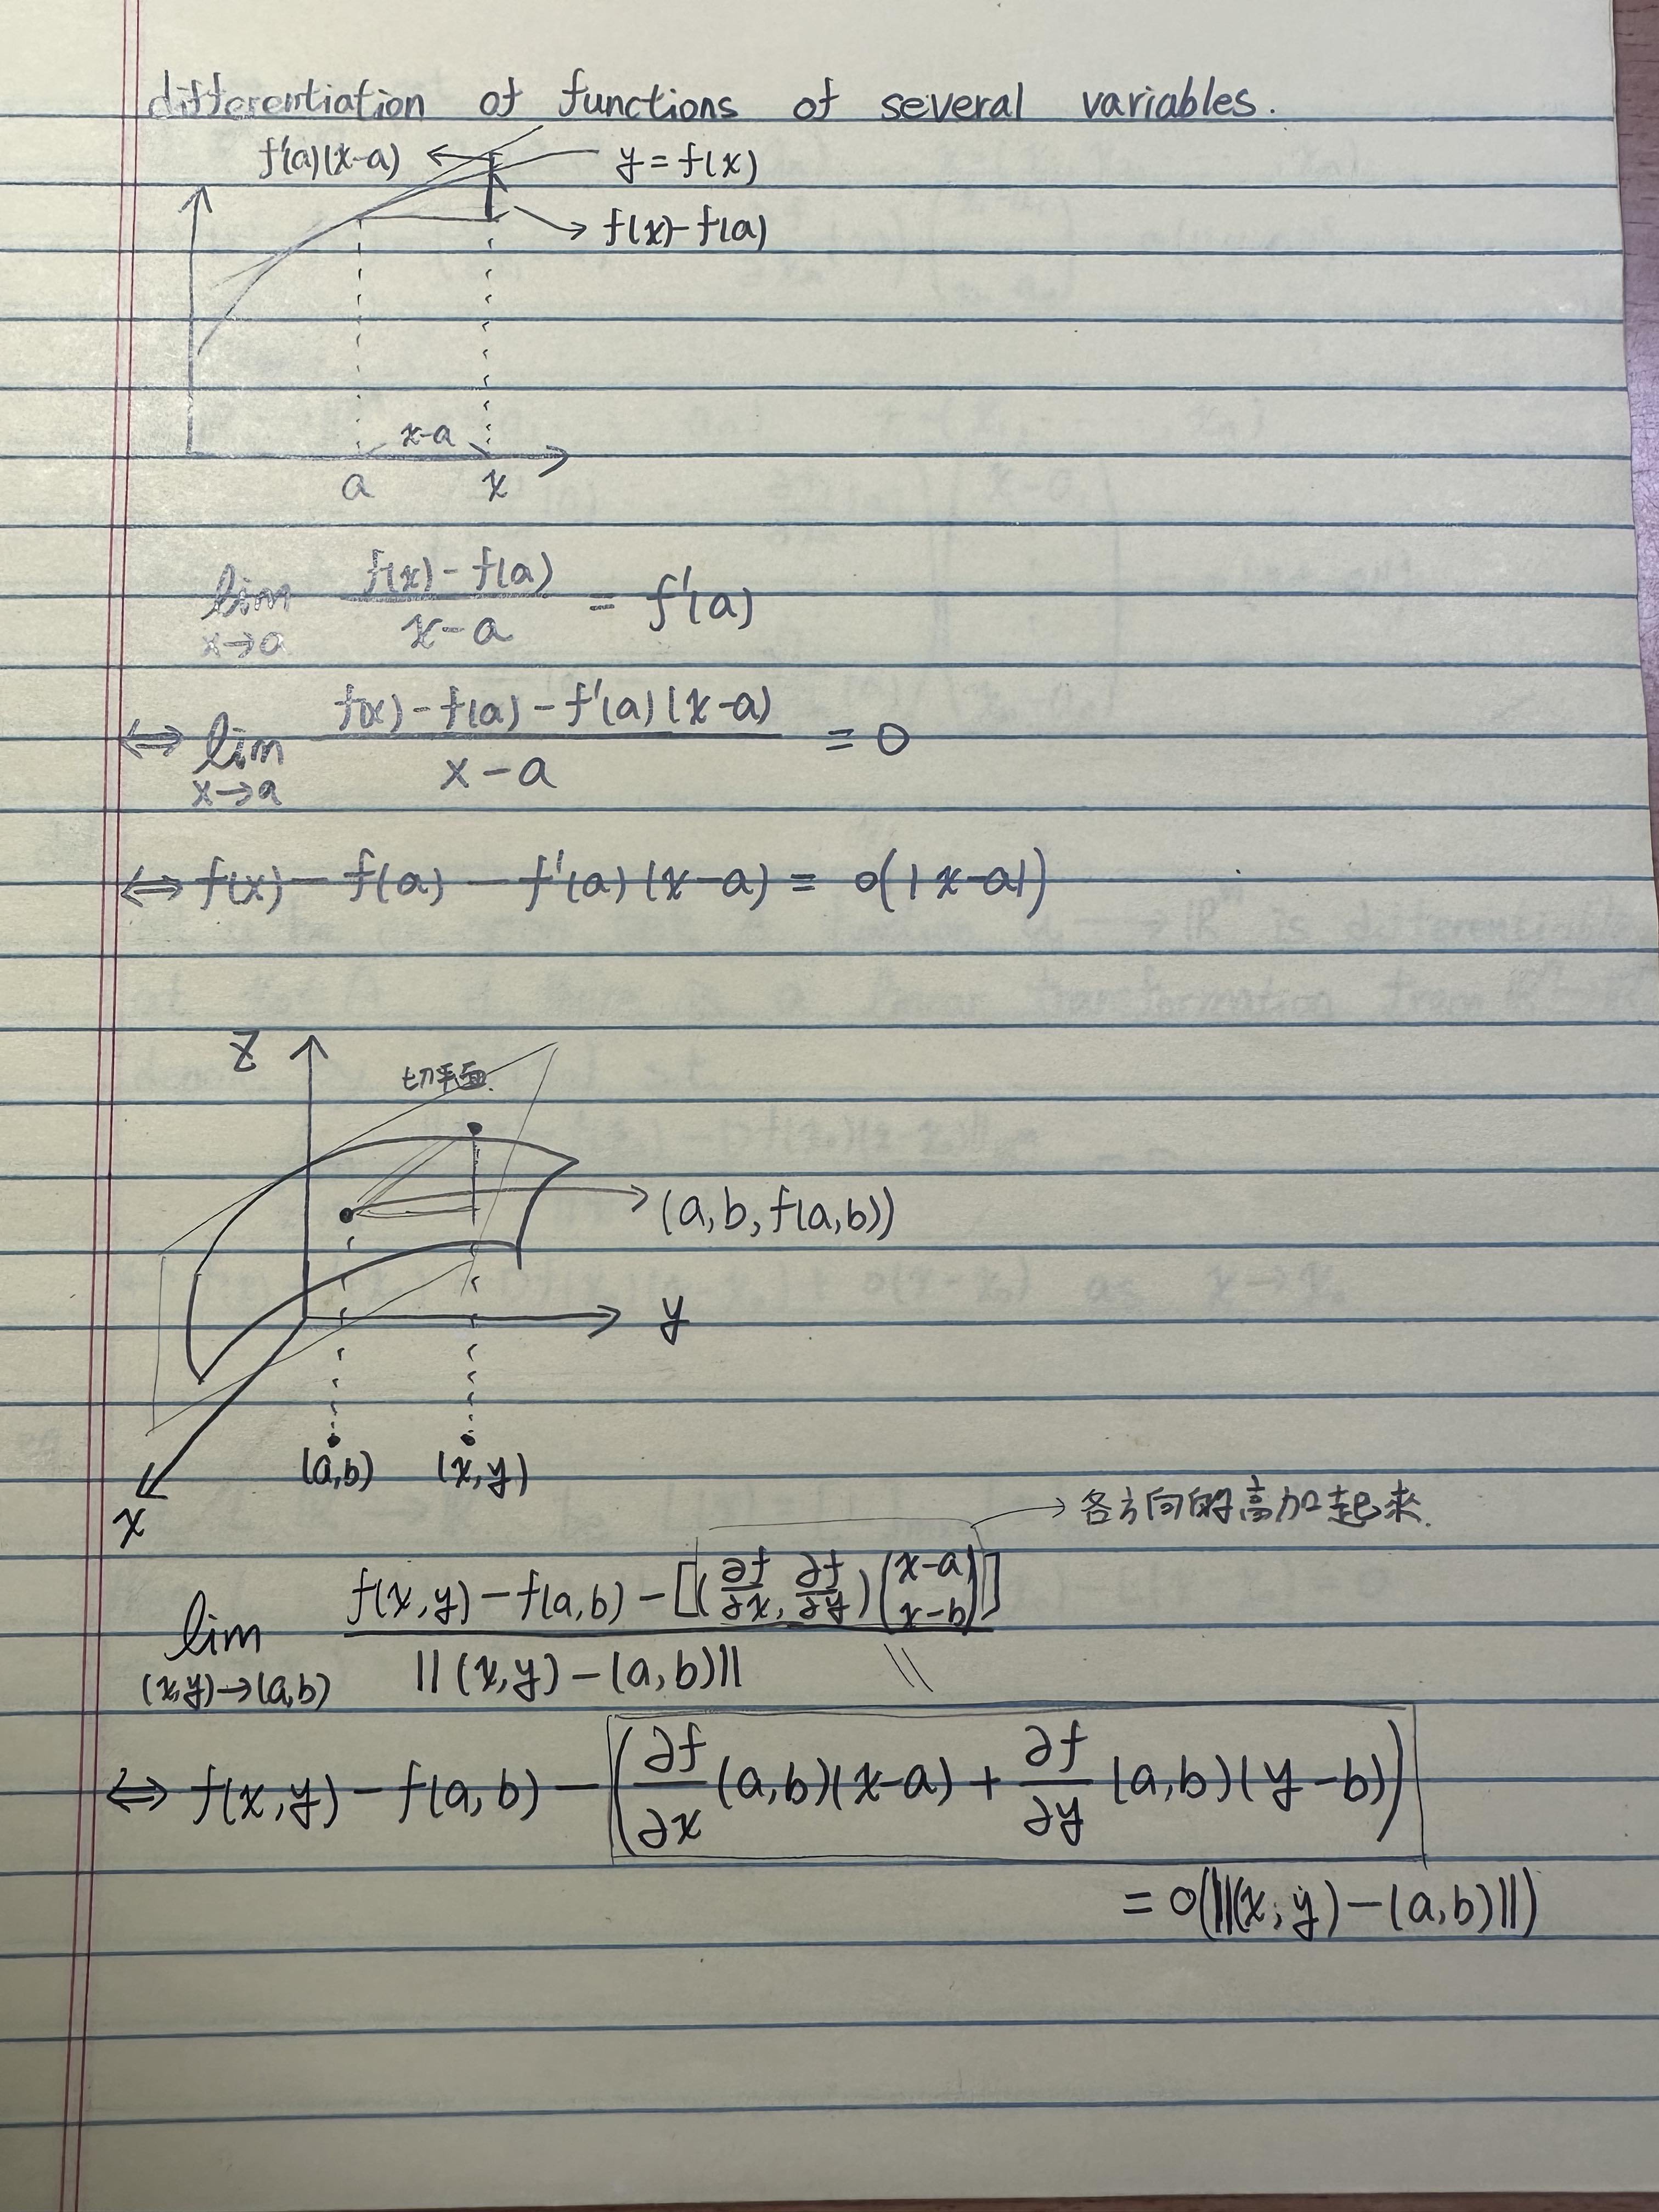 differentiation of functions of several variables.
f'(a)(x-a) ← y = f(x)
→ f(x)-f(a)
x-a
a x
lim x→a (f(x) - f(a))/(x-a) = f'(a)
⇔ lim x→a (f(x) - f(a) - f'(a)(x-a))/(x-a) = 0
⇔ f(x) - f(a) - f'(a)(x-a) = o(|x-a|)
z
切平面
→ (a,b,f(a,b))
y
(a,b) (x,y)
x
→ 各方向的高加起來.
lim (x,y)→(a,b) (f(x,y) - f(a,b) - [(∂f/∂x, ∂f/∂y)(x-a x-b)])/||(x,y) - (a,b)||
\\
⇔ f(x,y) - f(a,b) - (∂f/∂x (a,b)(x-a) + ∂f/∂y (a,b)(y-b))
= o(||(x,y) - (a,b)||)